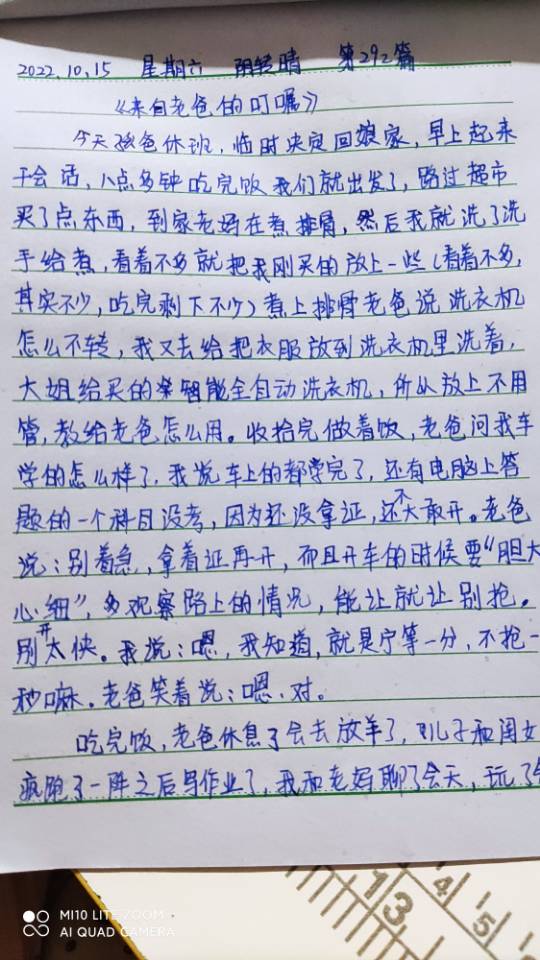 2022.10.15 星期六 阴转晴 第292篇
《来自老爸的叮嘱》
今天孩爸休班，临时决定回娘家，早上起来
干会活，八点多钟吃完饭我们就出发了，路过超市
买了点东西，到家老妈在煮排骨，然后我就洗了洗
手给煮，看着不多就把我刚买的放上一些（看着不多，
其实不少，吃完剩下不少）煮上排骨老爸说洗衣机
怎么不转，我又去给把衣服放到洗衣机里洗着，
大姐给买的智能全自动洗衣机，所以放上不用
管，教给老爸怎么用。收拾完做着饭，老爸问我车
学的怎么样了，我说车上的都学完了，还有电脑上答
题的一个科目没考，因为还没拿证，还不大敢开。老爸
说：别着急，拿着证再开，而且开车的时候要“胆大
心细”，多观察路上的情况，能让就让别抢。
别开太快。我说：嗯，我知道，就是宁等一分，不抢一
秒嘛。老爸笑着说：嗯，对。
吃完饭，老爸休息了会去放羊了，儿子和闺女
疯跑了一阵之后写作业了，我和老妈聊了会天，玩了
MI10 LITE ZOOM
AI QUAD CAMERA
13
4
5